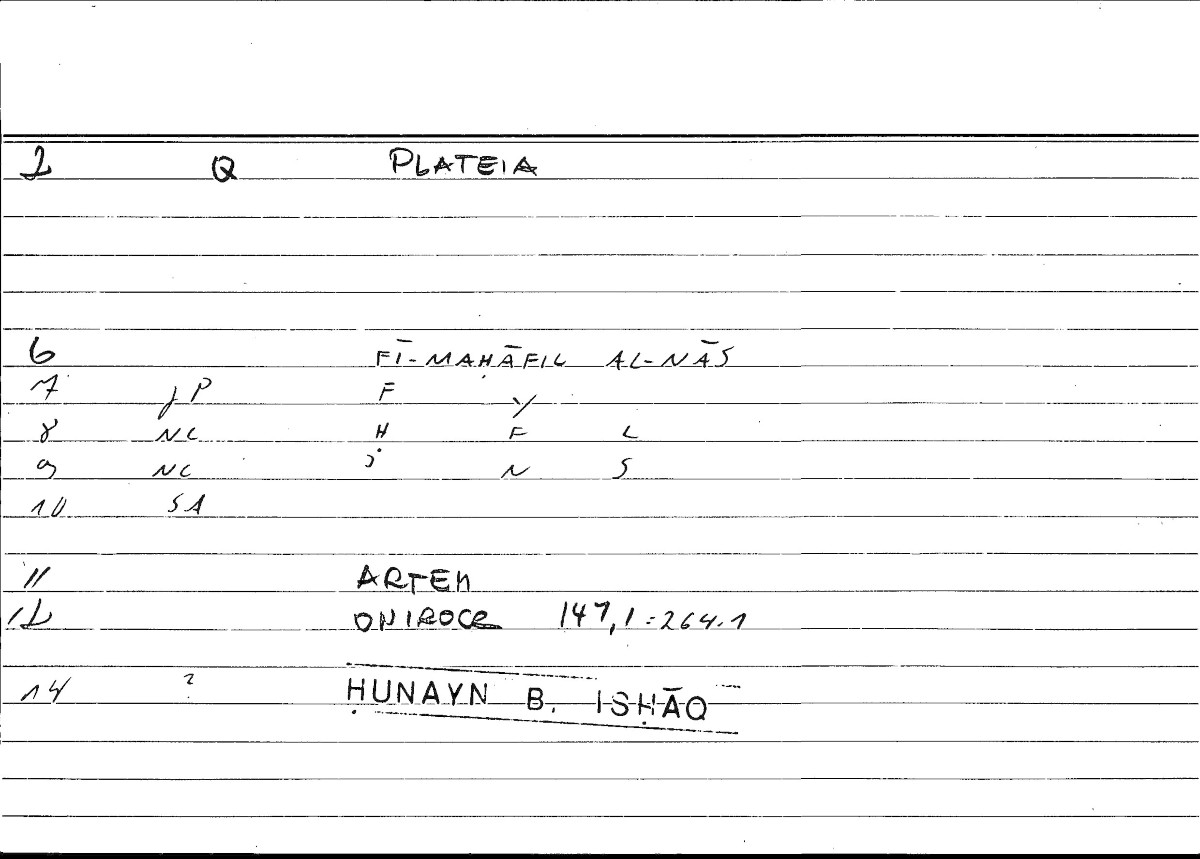 2 Q PLATEIA
6 FĪ-MAḤĀFIL AL-NĀS
7 jP F Y
8 NC Ḥ F L
9 NC N S
10 SA
11 ARTEM
12 ONIROCR 147,1=264.1
14 ? ḤUNAYN B. ISḤĀQ